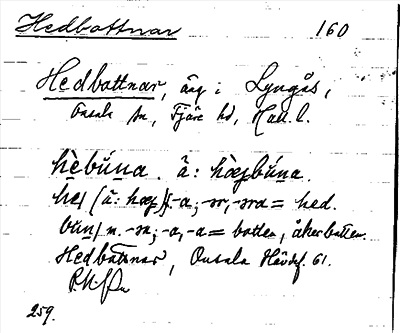 Hedbottnar 160
Hedbottnar, äng i Lyngås,
Onsala sn, Fjäre hd, Hall. l.
hèbúna. ä: hæbúna.
he (ä: hæ) -a; -ər, -əra = hed.
bún n. -ən; -a, -a = botten, åkerbotten.
Hedbottnar, Onsala Hävdsf. 61.
259.